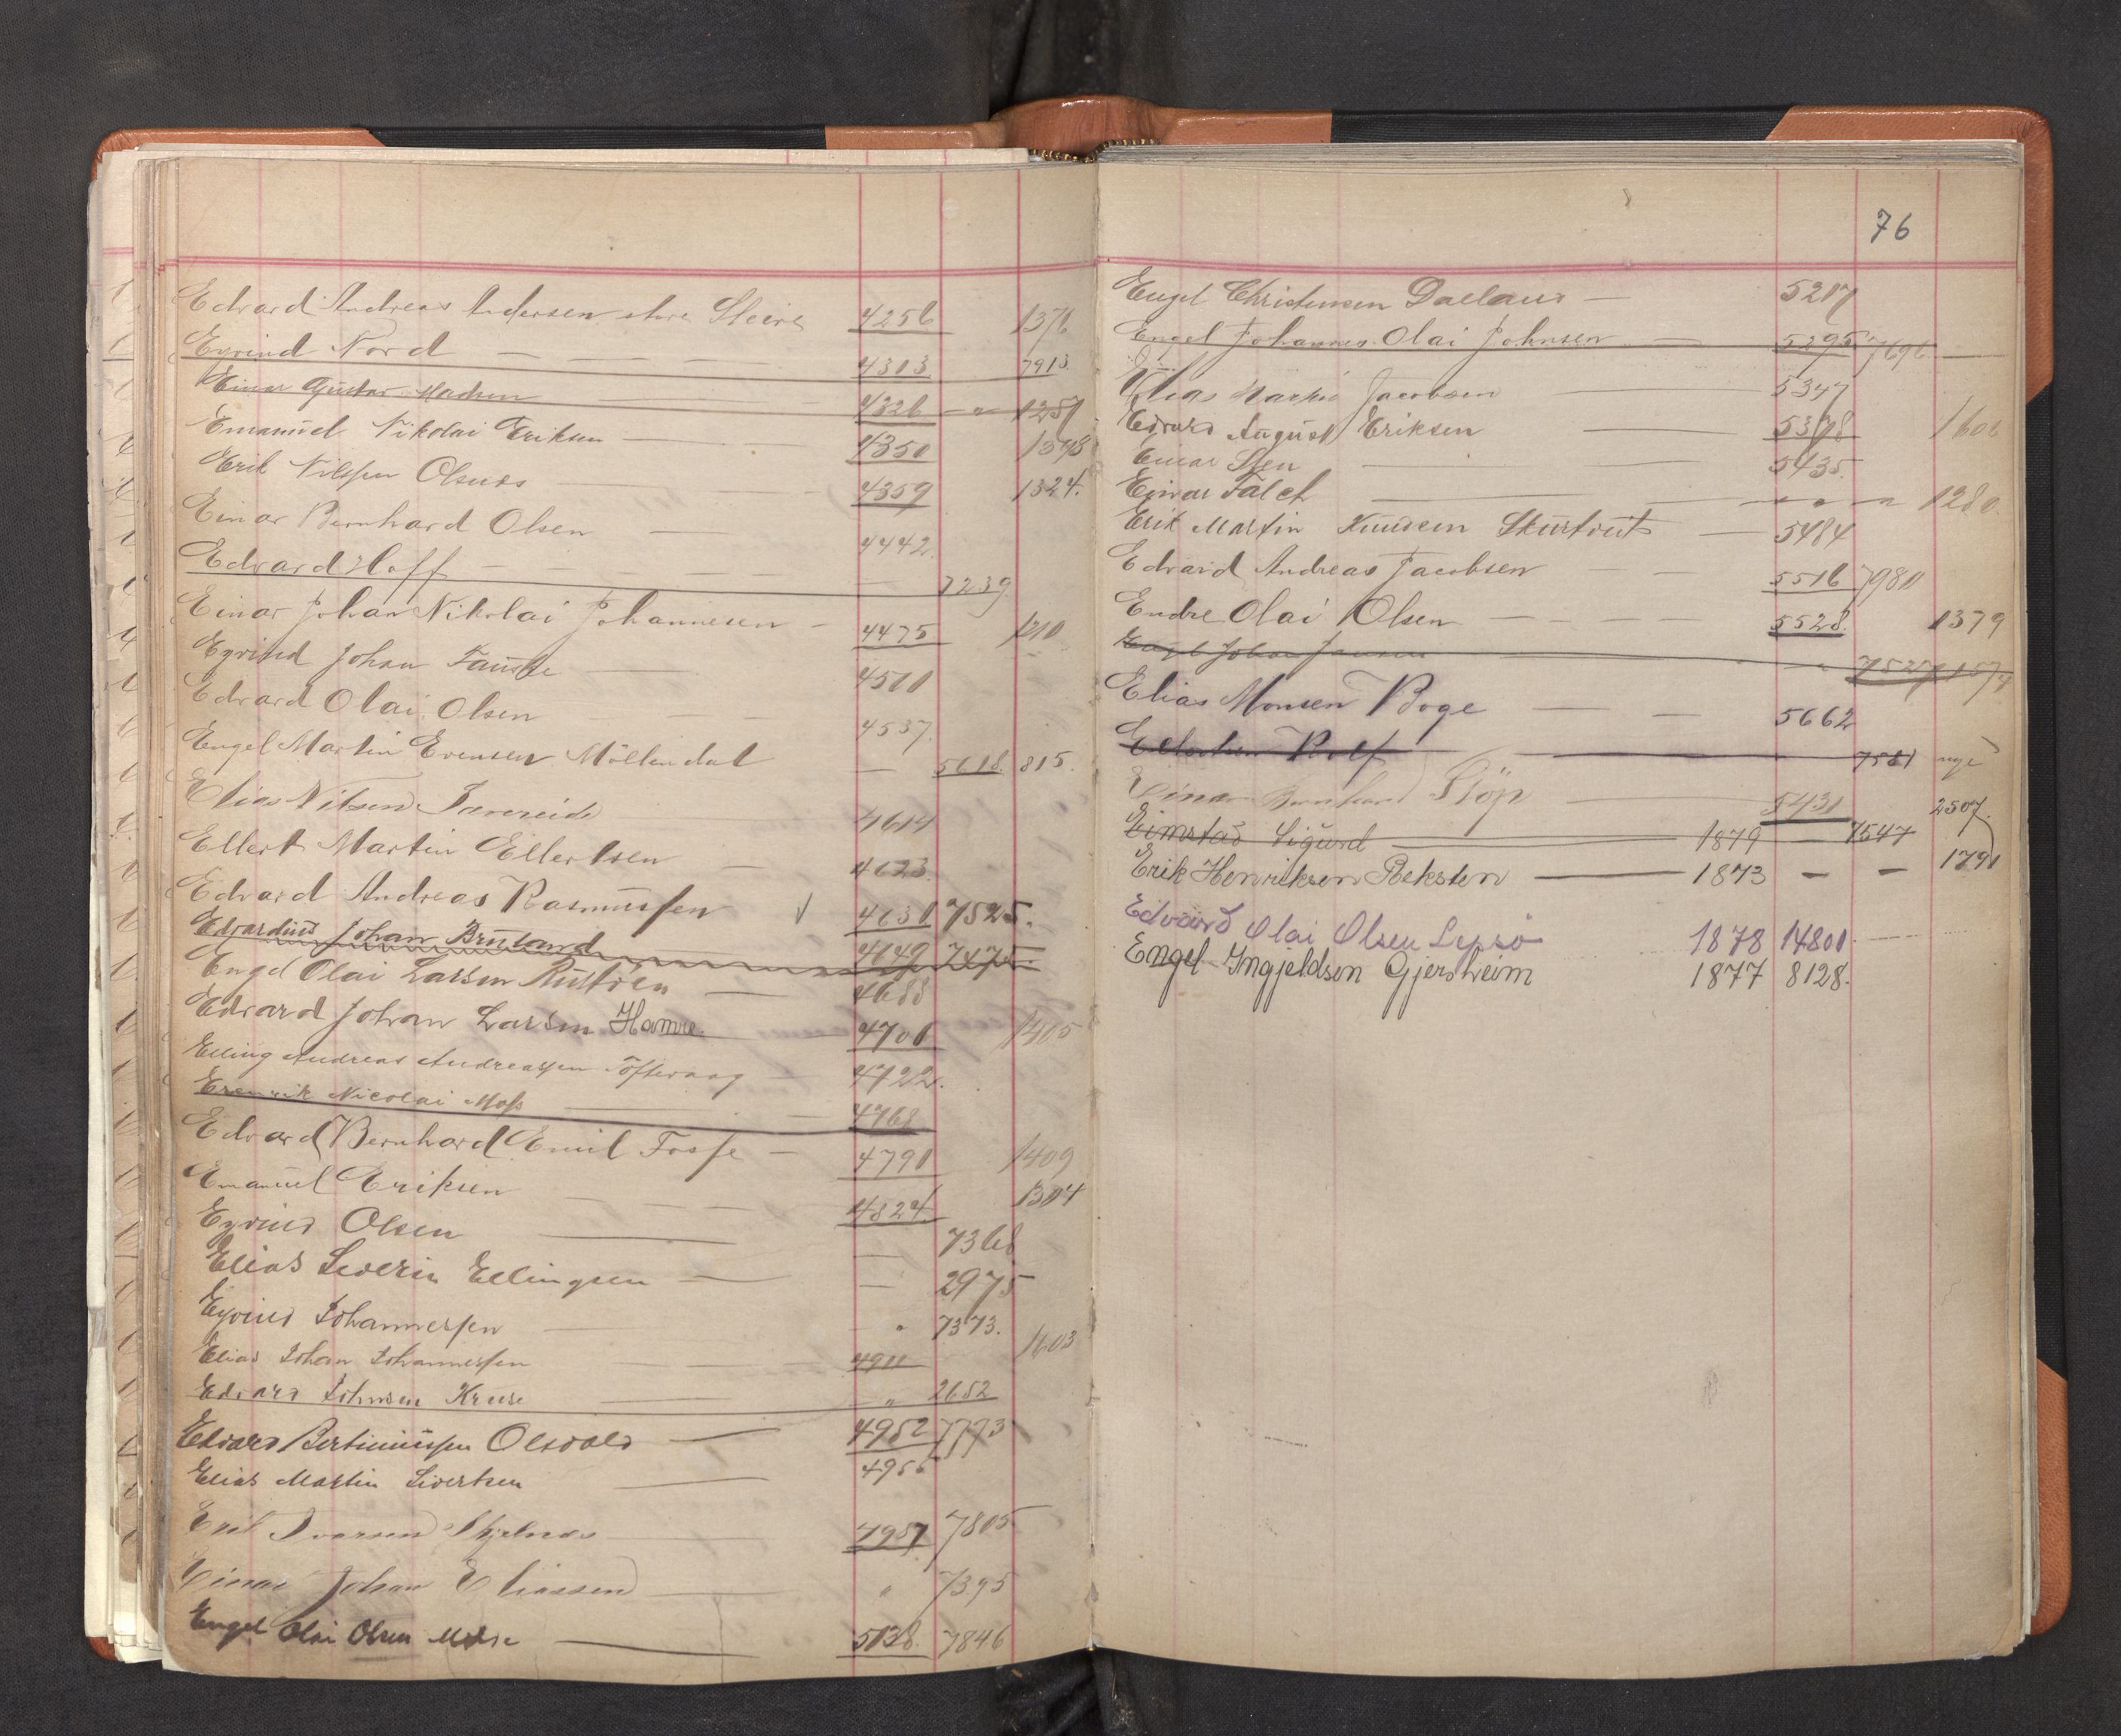 Edvard Andreas Andersen Steire 4256 1376
Eyvind Nord 4303 7913
Einar Gustav Madsen 4326 " 1257
Emanuel Nikolai Eriksen 4350 1398
Erik Nilssen Olsnes 4359 1324.
Einar Bernhard Olsen 4442
Edvard Hoff 7239
Einar Johan Nikolai Johannesen 4475 1210
Eyvind Johan Fauske 4500
Edvard Olai Olsen 4537.
Engel Martin Evensen Möllendal 5618 815.
Elias Nilsen Tarereide 4614
Ellert Martin Ellertsen 4623
Edvard Andreas Rasmussen √ 4630 7525.
Edvardius Johan Bruland 4649 7475.
Engel Olai Larsen Rustöen 4688
Edvard Johan Larsen Hamre 4700 1405
Elling Andreas Andreassen Toftevaag 4722.
Nicolai Moss 4768
Edvard Bernhard Emil Fosse 4790 1409
Emanuel Eriksen 4824 1304
Eyvind Olsen 7368
Elias Severin Ellingsen 2975
Eyvind Johannessen " 7373.
Elias Johan Johannessen 4911 1603
Edvard Johnsen Kruse " 2652
Edvard Bertinussen Olsvold 4952 7773
Elias Martin Sivertsen 4956
Erik Ivarsen Skjelnes 4987 7805
Einar Johan Eliassen " 7395
Engel Olai Olsen 5138 7846
76
Engel Christensen 5217
Engel Johannes Olai Johnsen 5295 7696
Elias Jacobsen 5347
Edvard August Eriksen 5398 1606
Einar Sten 5435
Einar Falch " " 1280
Erik Martin Knudsen Skurtveit 5484
Edvard Andreas Jacobsen 5516 7980
Endre Olai Olsen 5528. 1379
Engel Johan Jansen 7527
Elias Monsen Boge 5662
Rolf 7581 nye
Einar Bernhard Slöp 5431 2507
Eimstad Sigurd 1879 7547
Erik Henriksen Reksten 1873 - - 1791
Edvard Olai Olsen Lepsö 1878 14801
Engel Ingjeldsen Gjersheim 1877 8128.